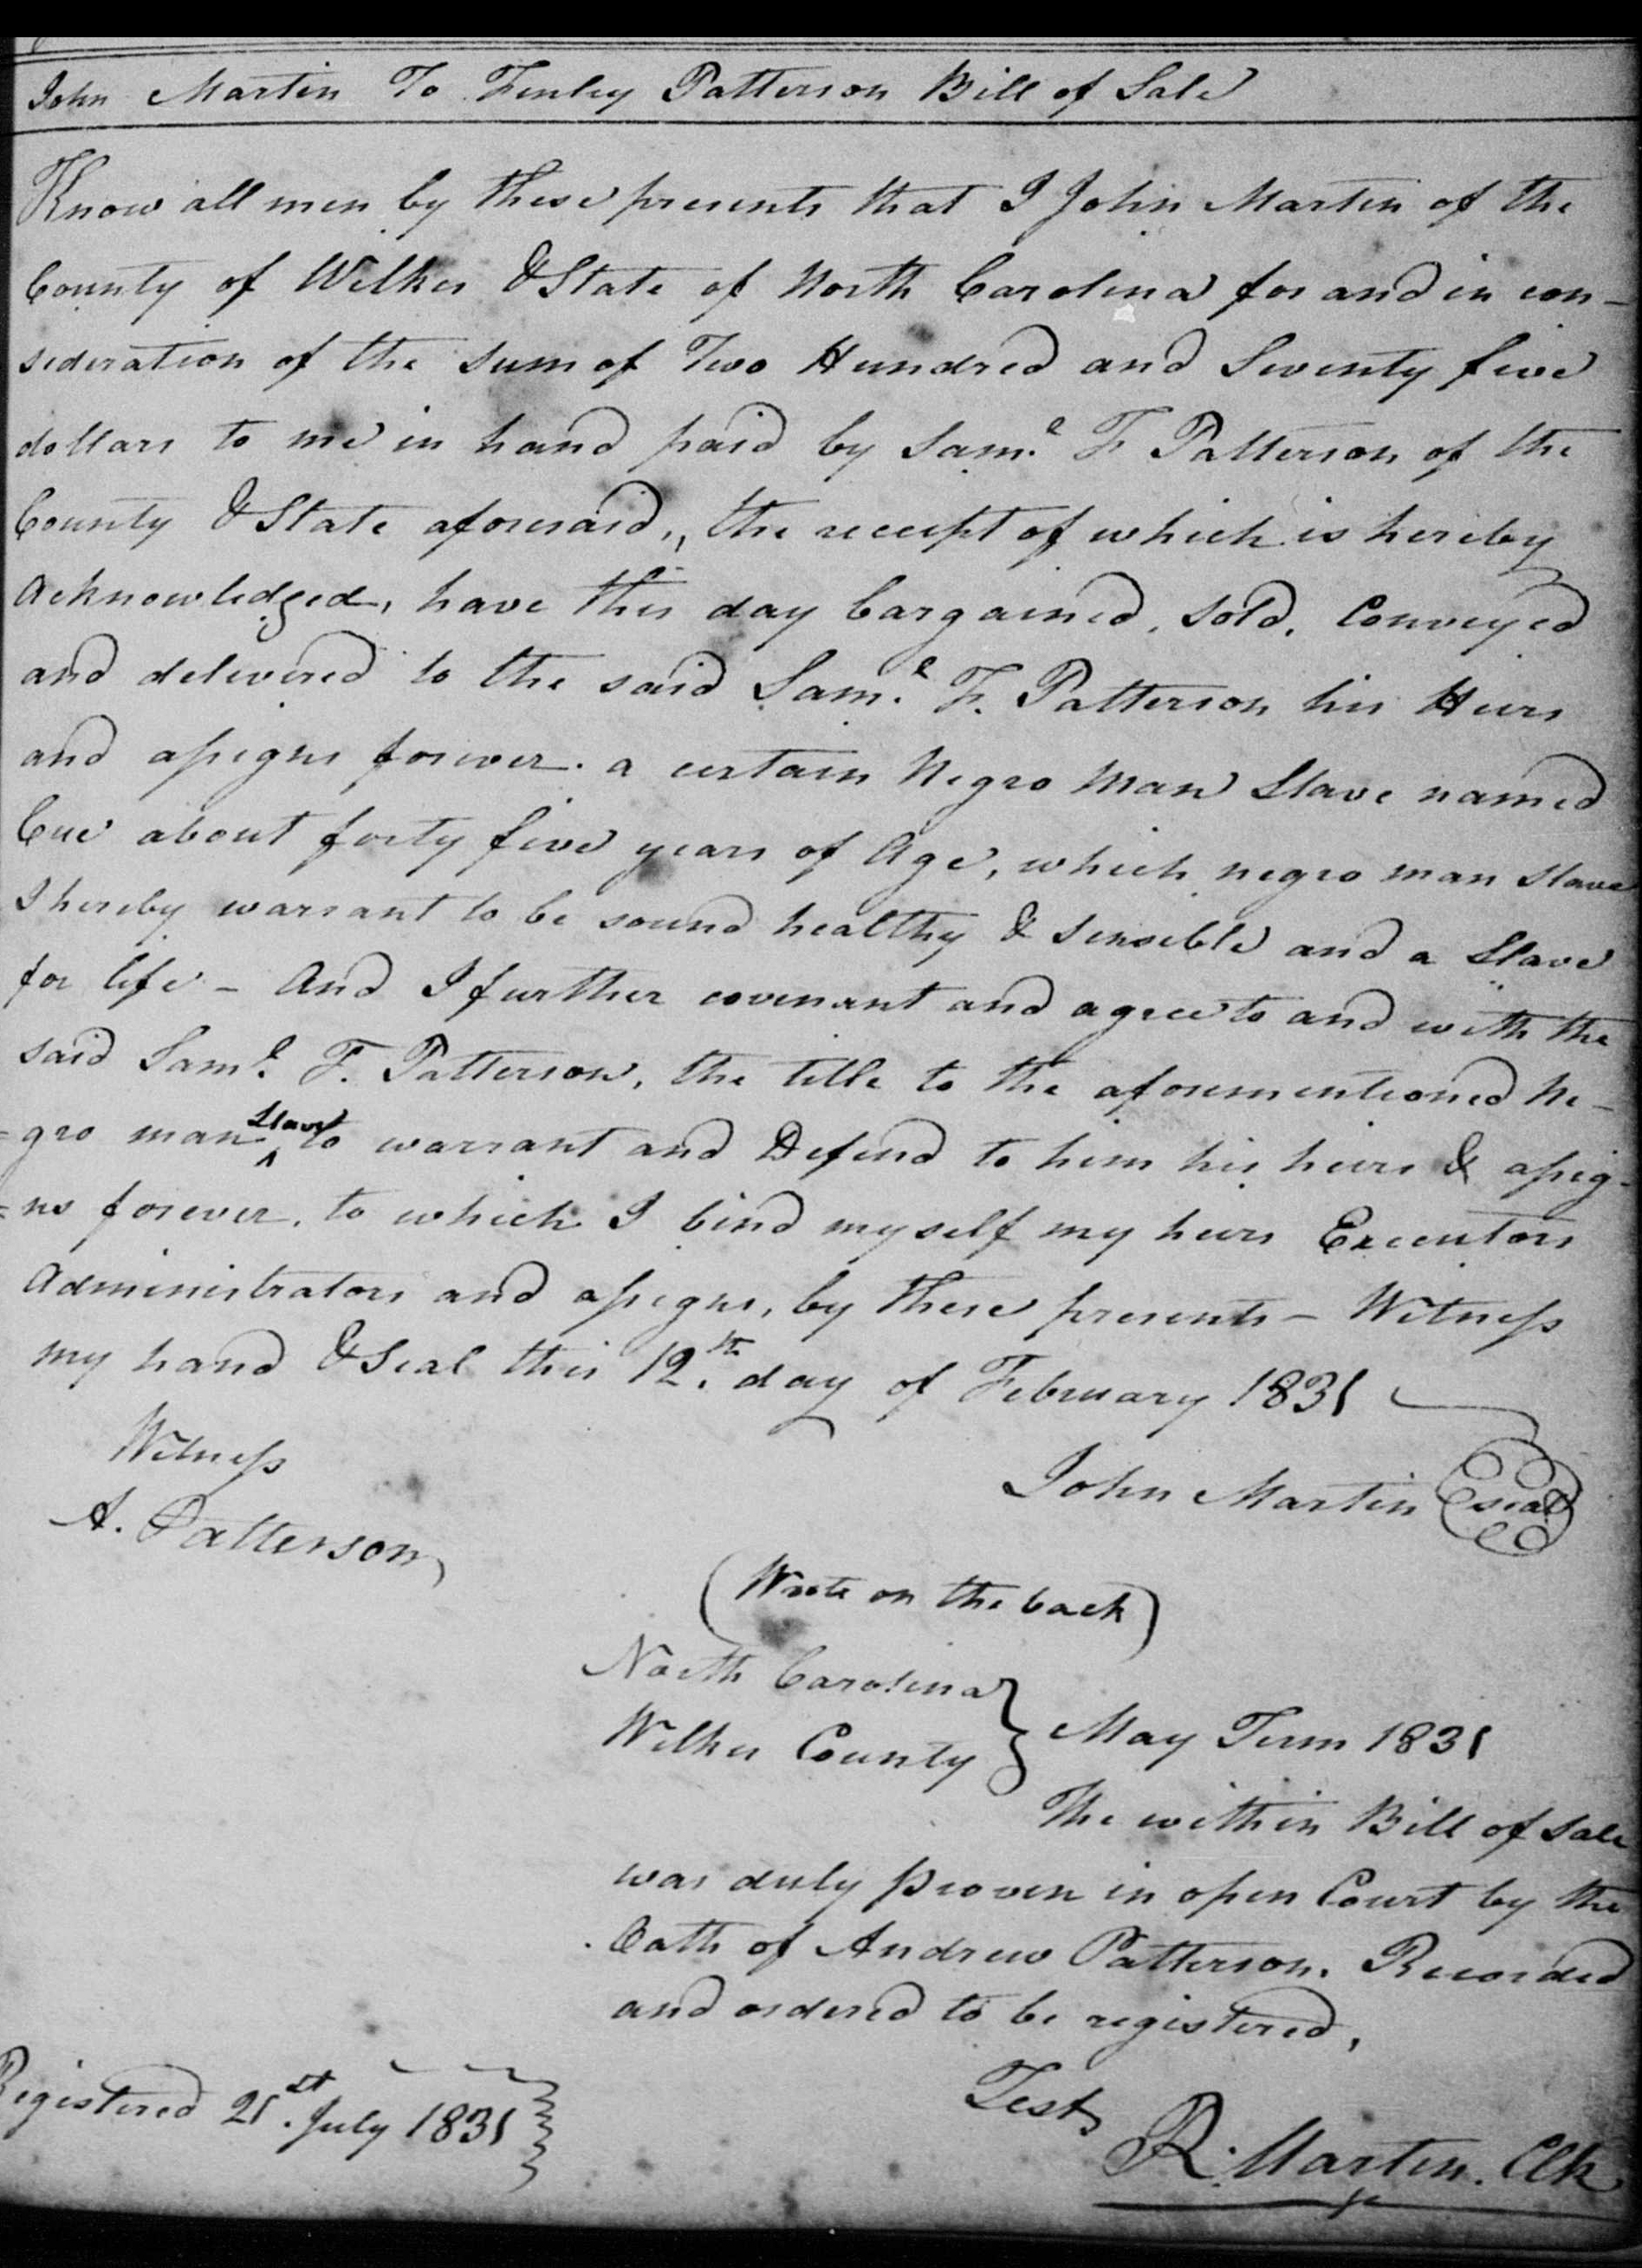 John Martin To Finley Patterson Bill of Sale
Know all men by these presents that I John Martin of the
County of Wilkes & State of North Carolina for and in con-
sideration of the sum of Two Hundred and Seventy five
dollars to me in hand paid by Saml. F Patterson of the
County & State aforesaid,, the receipt of which is hereby
Acknowledged, have this day bargained, sold, Conveyed
and delivered to the said Saml. F. Patterson his Heirs
and assigns forever. a certain Negro Man Slave named
Cue about forty five years of Age, which negro man slave
I hereby warrant to be sound healthy & sensible and a Slave
for life - And I further covenant and agree to and with the
said Saml. F. Patterson, the title to the aforementioned Ne-
=gro man Slave to warrant and Defend to him his heirs & assig-
=ns forever, to which I bind myself my heirs Executors
Administrators and assigns, by these presents - Witness
my hand & Seal this 12.th day of February 1831
Witness
John Martin seal
A. Patterson
(Wrote on the back)
North Carolina
Wilkes County } May Term 1831
The within Bill of Sale
was duly proven in open Court by the
Oath of Andrew Patterson. Recorded
and ordered to be registered,
Test
Registered 21.st July 1831
R. Martin. Clk